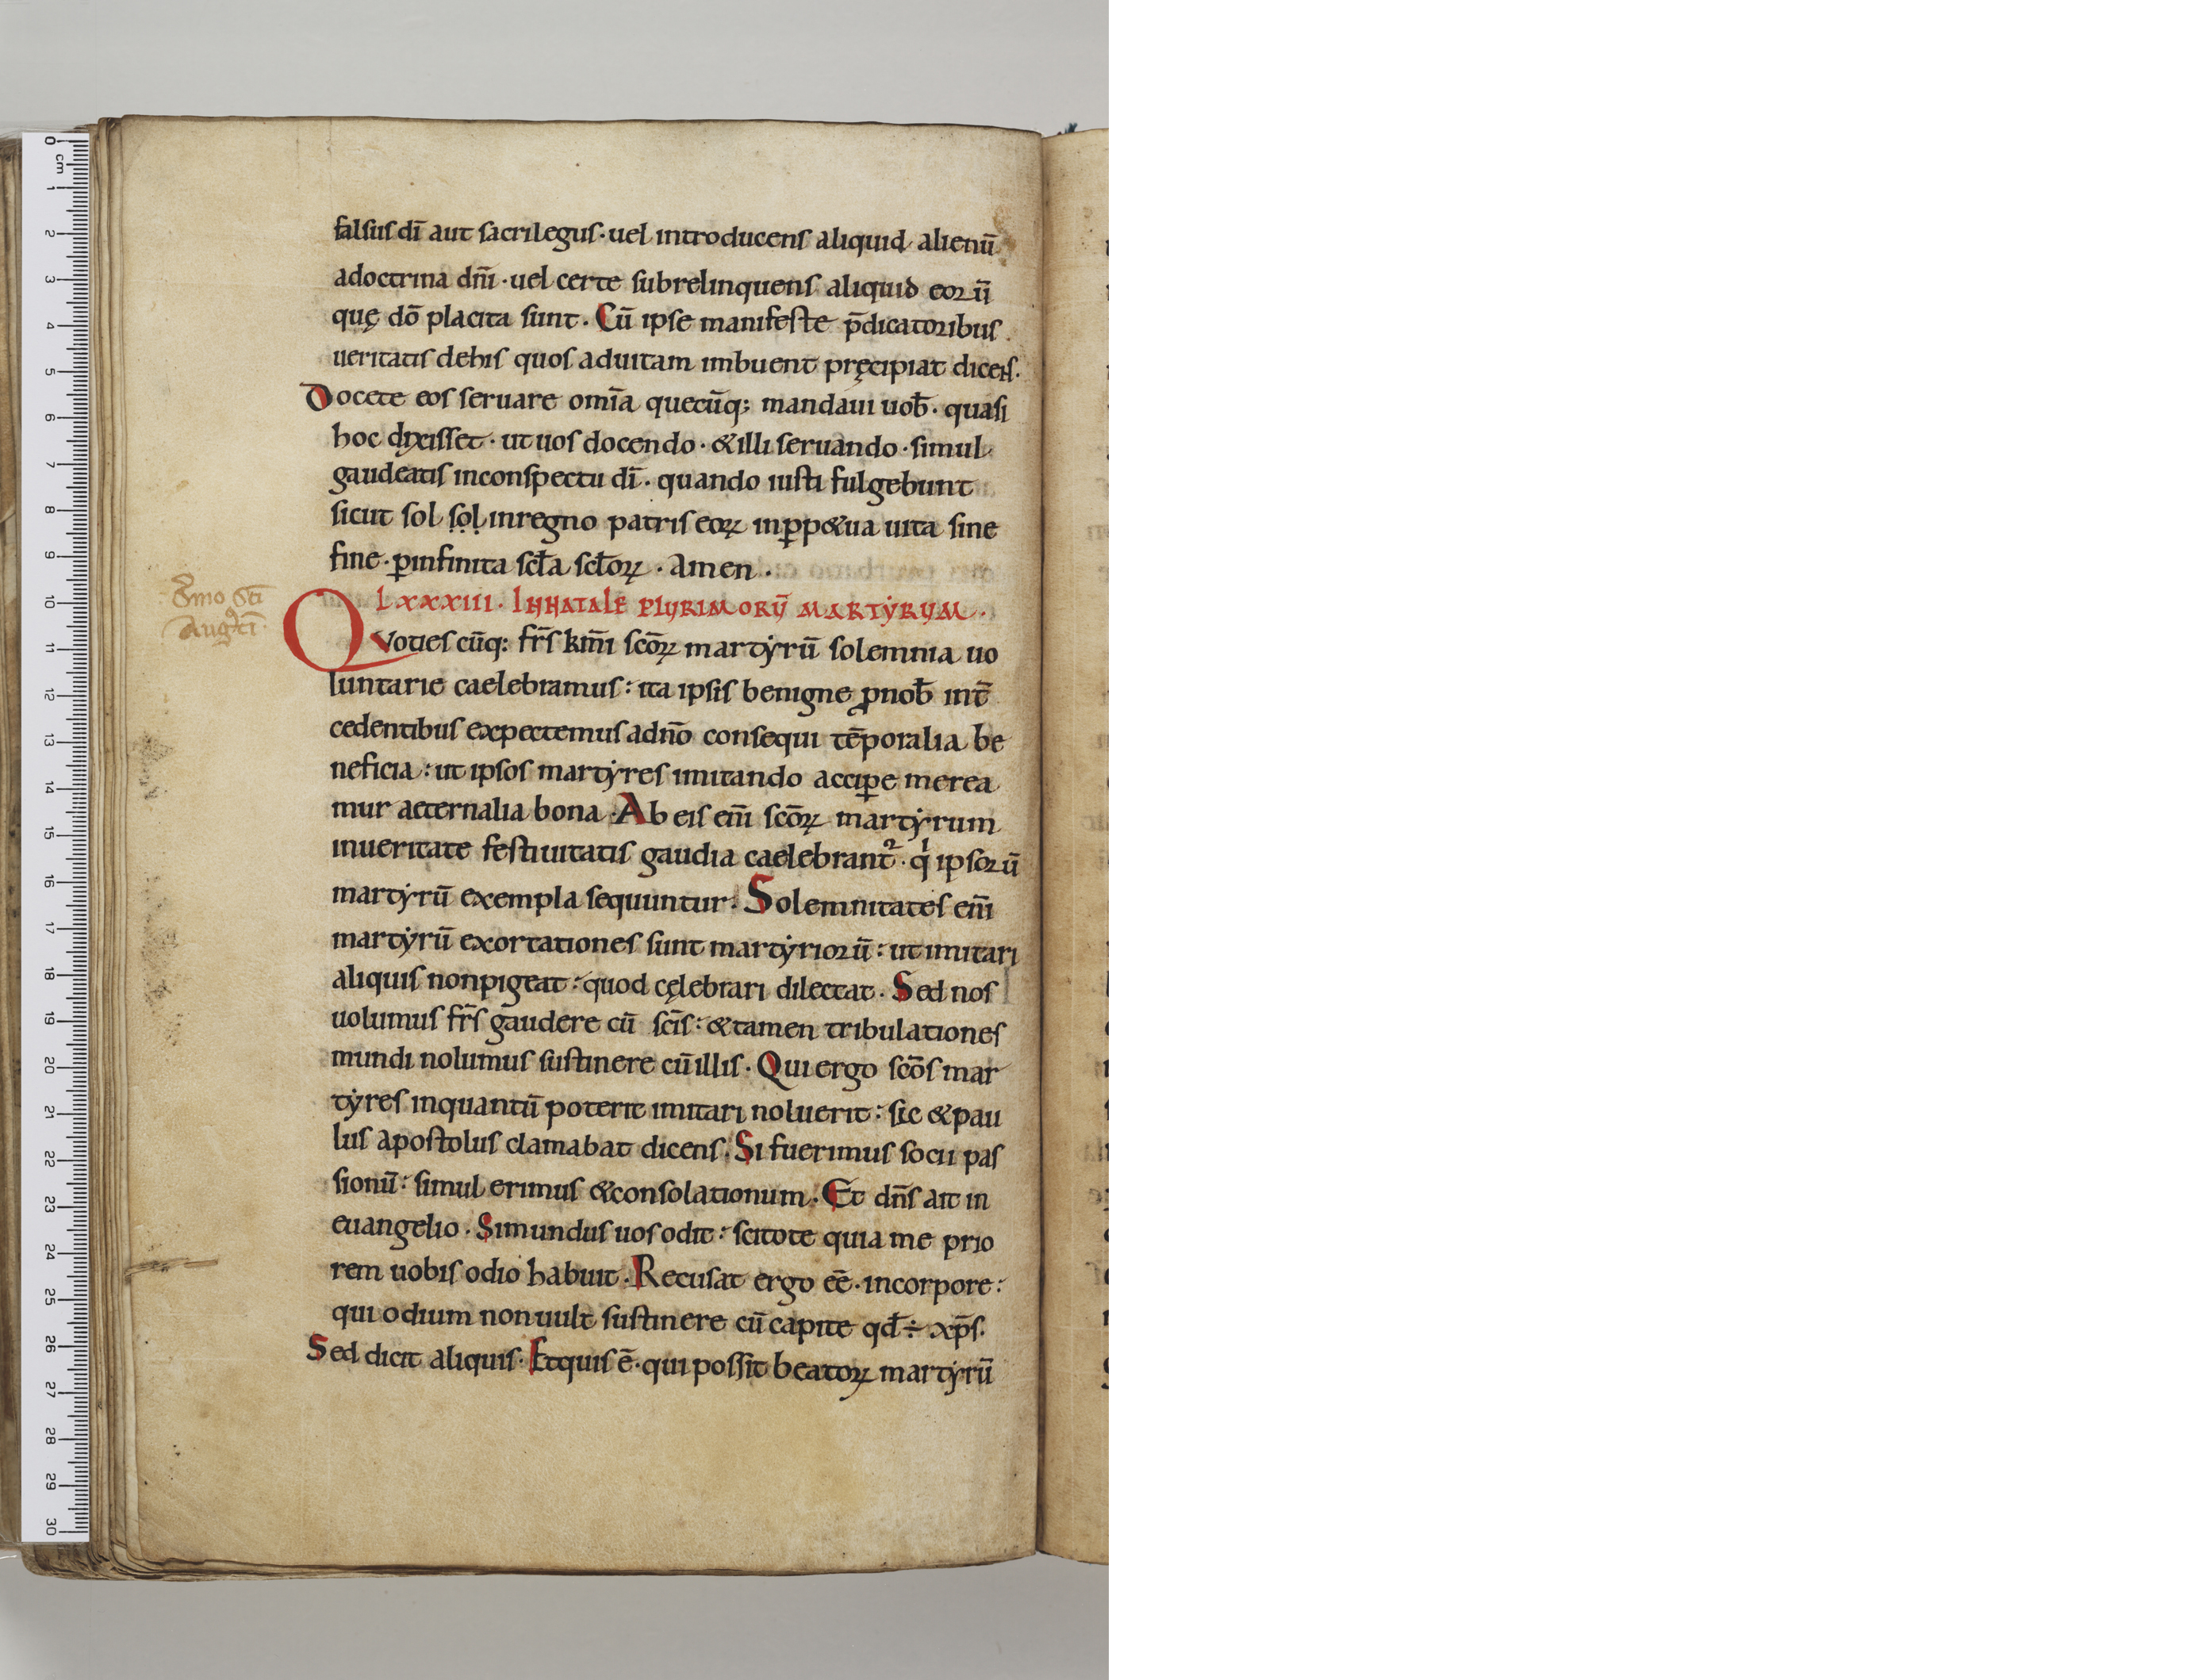 falsus dī aut sacrilegus · uel introducens aliquid alienū
adoctrina dn̄i · uel certe subrelinquens aliquid eorū
quę dō placita sunt. Cū ipse manifeste p̄dicatoribus
ueritatis dehis quos aduitam imbuent pręcipiat dicens.
Docete eos seruare om̄ia quecūq; mandaui uob̄ · quasi
hoc dixisset · ut uos docendo · & illi seruando · simul
gaudeatis inconspectu dī · quando iusti fulgebunt
sicut sol ṣọḷ inregno patris eoꝝ inꝑp&ua uita sine
fine · ꝑinfinita scl̄a scl̄oꝝ · Amen ·
Lxxxiii · INNATALE PLURIMORŪ MARTẎRUM ·
Sm̄o Sc̄i
Augꝰti
Quotiescūq; fr̄s km̄i sc̄oꝝ martẏrū solemnia uo
luntarie caelebramus : ita ipsis benigne ꝓnob̄ int̄
cedentibus expectemus adn̄o consequi tēporalia be
neficia : ut ipsos martẏres imitando acciꝑe merea
mur aeternalia bona · Ab eis eni̅ sc̄oꝝ martẏrum
inueritate festiuitatis gaudia caelebrant᷑ · qⁱ ipsorū
martẏrū exempla sequuntur · Solemnitates eni̅
martẏrū exortationes sunt martẏriorū : ut imitari
aliquis nonpigeat : quod cęlebrari dilectat · Sed nos
uolumus fr̄s gaudere cū sc̄is : & tamen tribulationes
mundi nolumus sustinere cū illis · Qui ergo sc̄os mar
tẏres inquantū poterit imitari noluerit : sic & pau
lus apostolus clamabat dicens · Si fuerimus socii pas
sionū : simul erimus & consolationum · Et dn̄s ait in
euangelio · Simundus uos odit : scitote quia me prio
rem uobis odio habuit · Recusat ergo eē · incorpore :
qui odium non uult sustinere cū capite qd̄ ÷ xp̄s ·
Sed dicit aliquis · Etquis ē · qui possit beatoꝝ martẏrū
0 cm 1 2 3 4 5 6 7 8 9 10 11 12 13 14 15 16 17 18 19 20 21 22 23 24 25 26 27 28 29 30